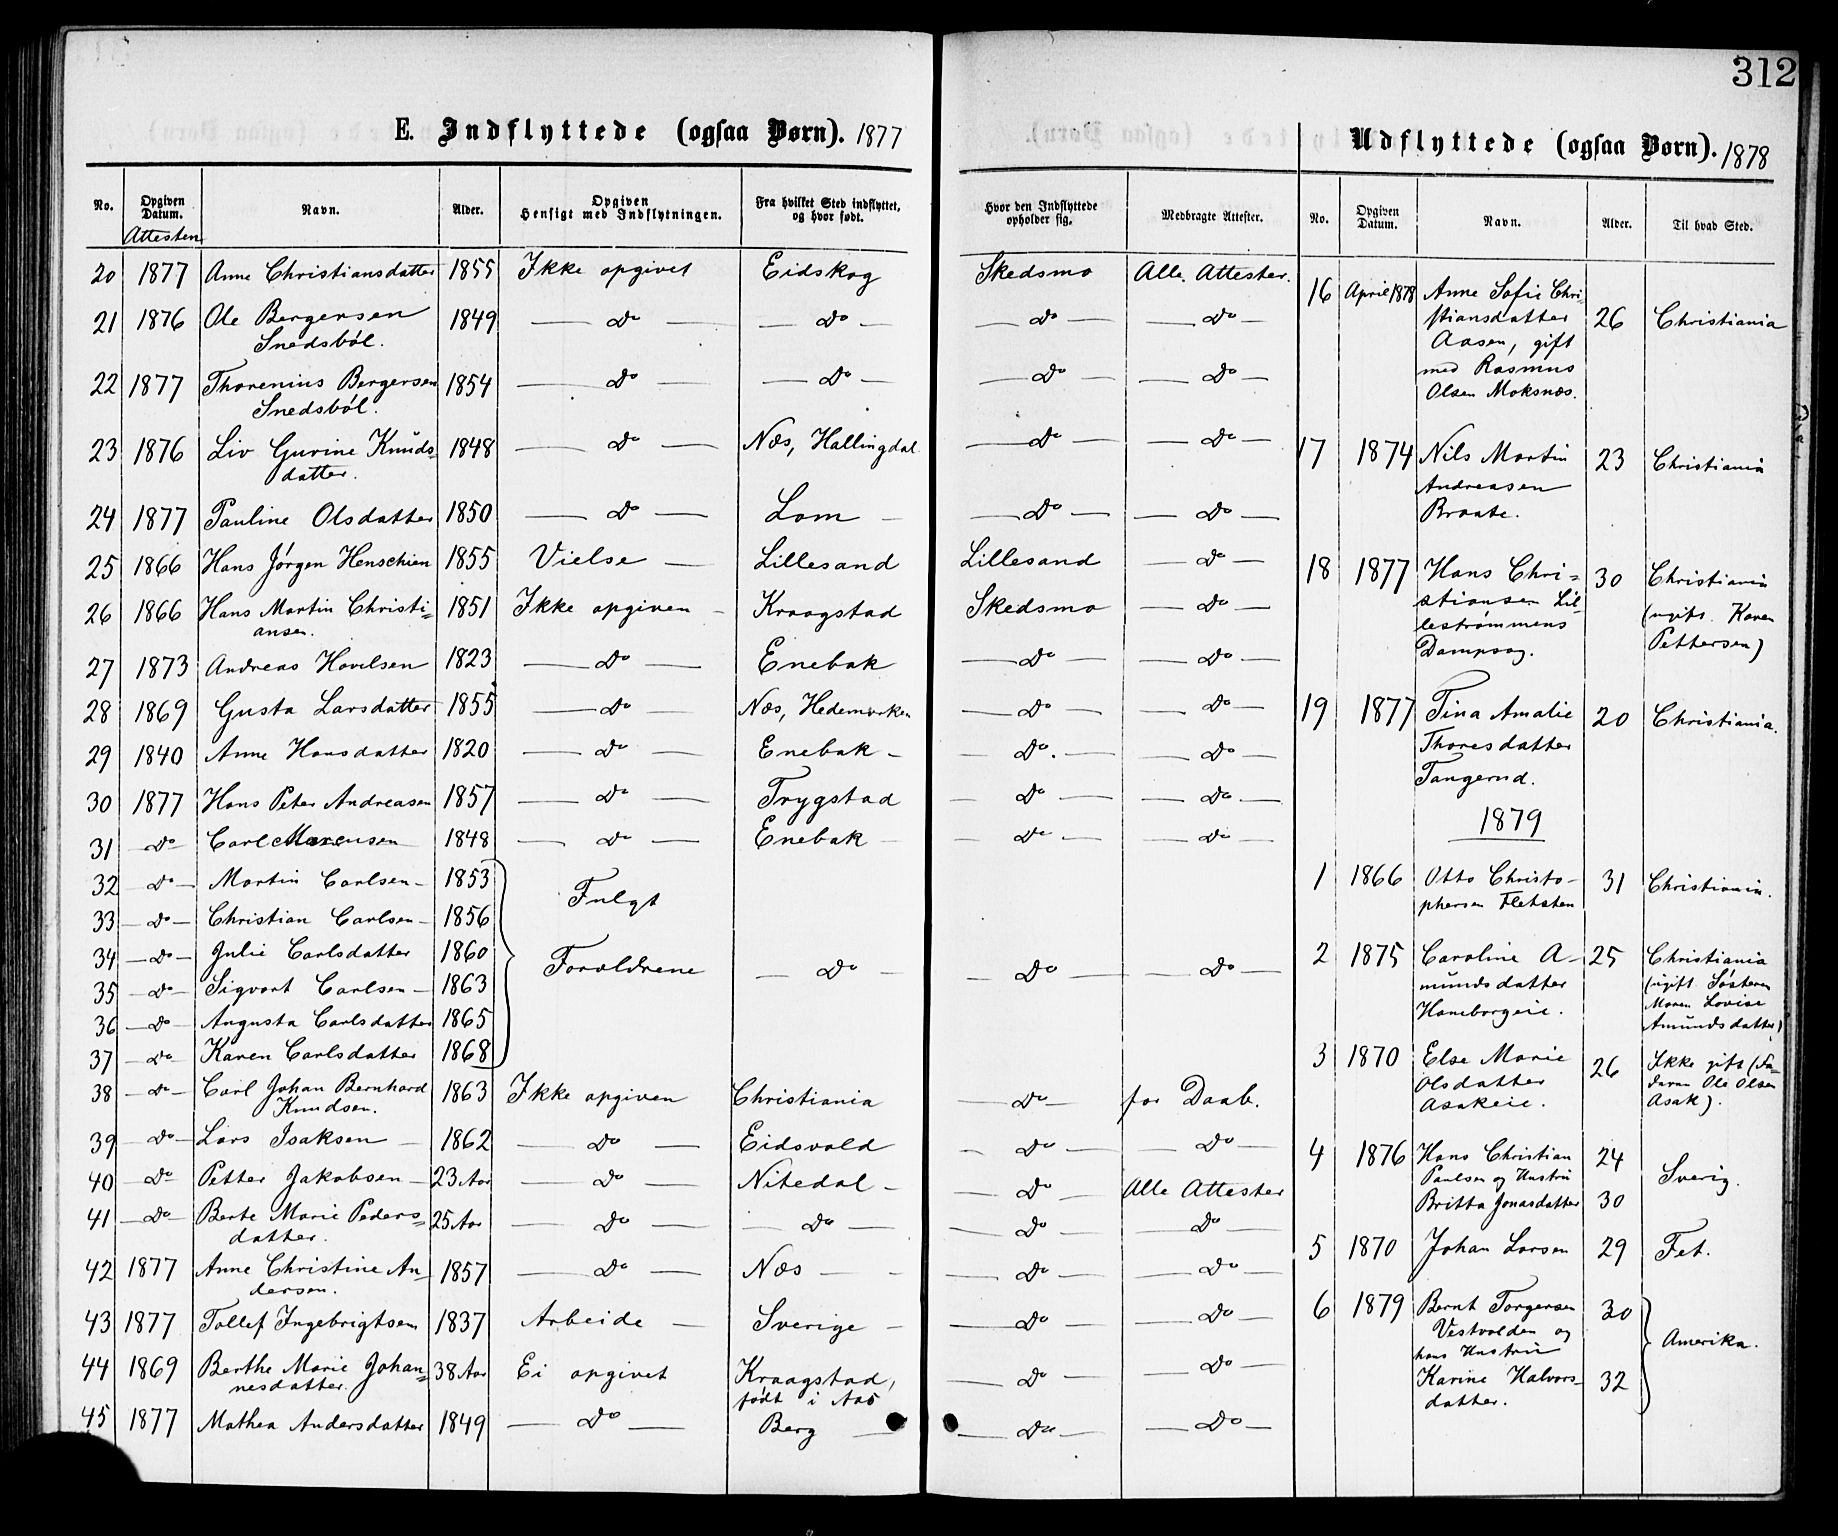 312
E. Indflyttede (ogsaa Børn). 1877
No. Opgiven Datum. Attesten Navn. Alder. Opgiven Hensigt med Indflytningen. Fra hvilket Sted indflyttet, og hvor født. Hvor den Indflyttede opholder sig. Medbragte Attester.
20 1877 Anne Christiansdatter 1855 Ikke opgivet Eidskog Skedsmo Alle Attester.
21 1876 Ole Bergersen 1849 — Do — — Do — — Do — — Do —
Snedsböl.
22 1877 Thorenius Bergersen 1854 — Do — — Do — — Do — — Do —
Snedsböl.
23 1876 Liv Gurine Knuds- 1848 — Do — Næs, Hallingdal — Do — — Do —
datter.
24 1877 Pauline Olsdatter 1850 — Do — Lom — — Do — — Do —
25 1866 Hans Jørgen Henschien 1855 Vielse — Lillesand Lillesand — Do —
26 1866 Hans Martin Christi- 1851 Ikke opgiven — Kraagstad Skedsmo — Do —
ansen.
27 1873 Andreas Hovelsen 1823 — Do — Enebak — Do — — Do —
28 1869 Gusta Larsdatter 1855 — Do — Næs, Hedemarken — Do — — Do —
29 1840 Anne Hansdatter 1820 — Do — Enebak — — Do. — — Do —
30 1877 Hans Peter Andreasen 1857 — Do — Trygstad — Do — — Do —
31 — Do — Carl Marensen 1848 — Do — Enebak — — Do — — Do —
32 — Do — Martin Carlsen — 1853
Fulgt
33 — Do — Christian Carlsen — 1856
34 — Do — Julie Carlsdatter 1860
Forældrene — Do — — Do — — Do —
35 — Do — Sigvart Carlsen — 1863
36 — Do — Augusta Carlsdatter 1865
37 — Do — Karen Carlsdatter 1868
38 — Do — Carl Johan Bernhard 1863 Ikke opgiven Christiania — Do — for Daab.
Knudsen.
39 — Do — Lars Isaksen — 1862 — Do — Eidsvold — Do — — Do —
40 — Do — Petter Jakobsen — 23 Aar — Do — Nitedal — — Do — Alle Attester
41 — Do — Berte Marie Peders- 25 Aar — Do — — Do — — Do — Do —
datter.
42 1877 Anne Christine An- 1857 — Do — Næs — — — Do — — Do —
dersen.
43 1877 Tollef Ingebrigtsen 1837 Arbeide — Sverige — — Do — — Do —
44 1869 Berthe Marie Johan- 38 Aar Ei opgivet Kraagstad, — Do — — Do —
nesdatter. født i Aas
45 1877 Mathea Andersdatter 1849 — Do — Berg — — Do — — Do —
Udflyttede (ogsaa Børn). 1878
No. Opgiven Datum. Navn. Alder. Til hvad Sted.
16 April 1878 Anne Sofie Chri-
stiansdatter 26 Christiania
Aasen, gift
med Rasmus
Olsen Moksnæs.
17 1874 Nils Martin 23 Christiania
Andreasen
Braate.
18 1877 Hans Chri- 30 Christiania
stiansen Lil- (ugift. Karen
lestrømmens Pettersen)
Dampsag.
19 1877 Tina Amalie 20 Christiania.
Thoresdatter
Tangerud.
1879
1 1866 Otto Christo- 31 Christiania.
phersen Fletsten
2 1875 Caroline A- 25 Christiania
mundsdatter (ugift Søsteren
Haneborgeie. Maren Lovise
Amundsdatter)
3 1870 Else Marie 26 Ikke gift (Fa-
Olsdatter deren Ole Olsen
Asakeie. Asak).
4 1876 Hans Christian 24
Paulsen og Hustru Sverig.
Britta Jonasdatter 30
5 1870 Johan Larsen 29 Fet.
6 1879 Bernt Torgersen 30
Vestvolden og Amerika.
hans Hustru
Karine Halvors- 32
datter.